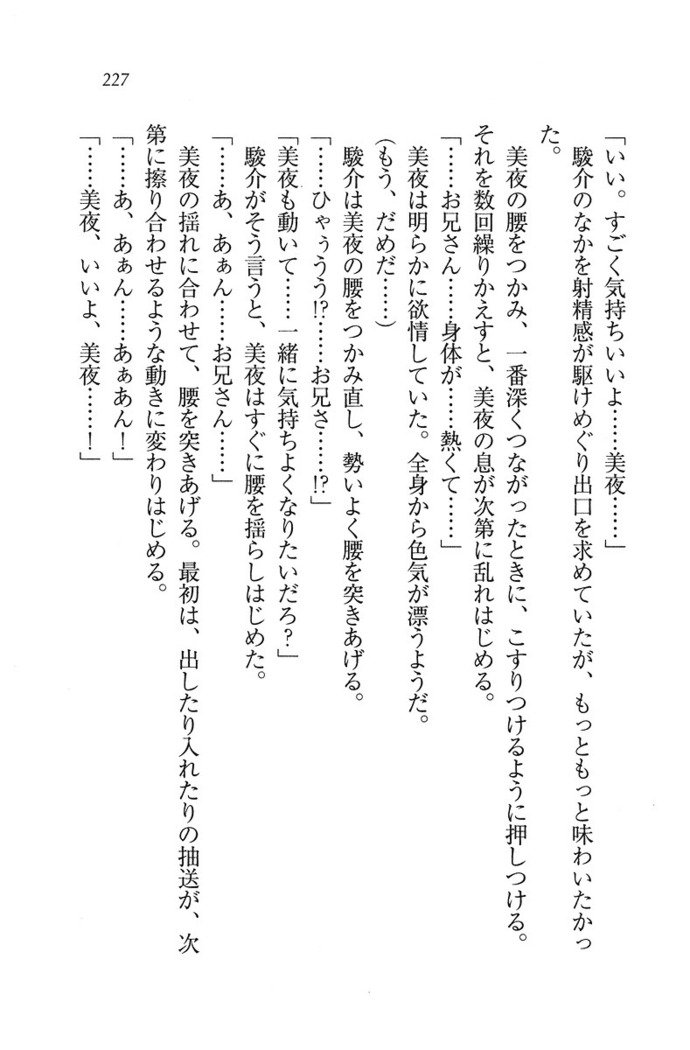 227
「いい。すごく気持ちいいよ……美夜……」
駿介のなかを射精感が駆けめぐり出口を求めていたが、もっともっと味わいたかっ
た。
美夜の腰をつかみ、一番深くつながったときに、こすりつけるように押しつける。
それを数回繰りかえすと、美夜の息が次第に乱れはじめる。
「……お兄さん……身体が……熱くて……」
美夜は明らかに欲情していた。全身から色気が漂うようだ。
(もう、だめだ……)
駿介は美夜の腰をつかみ直し、勢いよく腰を突きあげる。
「……ひゃぅうう!?……お兄さ……!?」
「美夜も動いて……一緒に気持ちよくなりたいだろ?」
駿介がそう言うと、美夜はすぐに腰を揺らしはじめた。
「……あ、あぁん……お兄さん……」
美夜の揺れに合わせて、腰を突きあげる。最初は、出したり入れたりの抽送が、次
第に擦り合わせるような動きに変わりはじめる。
「……あ、あぁん……あぁあん!」
「……美夜、いいよ、美夜……!」